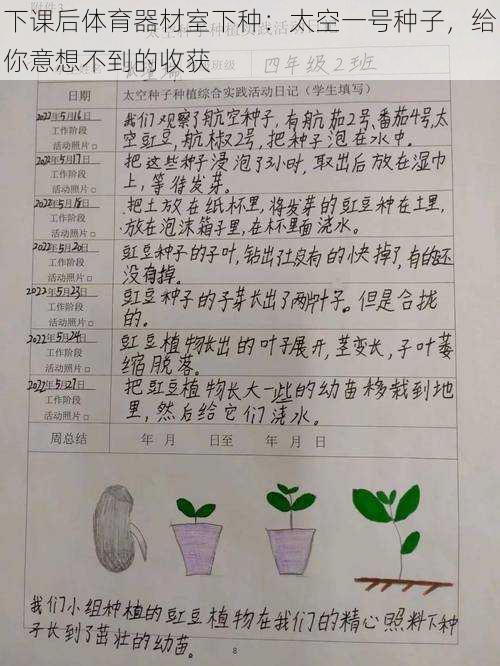 附件3
下课后体育器材室下种：太空一号种子，给
你意想不到的收获
班级 四年级2班
日期 太空种子种植综合实践活动日记（学生填写）
2022年5月16日
工作阶段
活动照片□
我们观察了航空种子，有航茄2号、番茄4号,太
空豇豆,航椒2号,把种子泡在水中。
2022年5月17日
工作阶段
活动照片□
把这些种子浸泡了3小时，取出后放在湿巾
上，等待发芽。
2022年5月18日
工作阶段
活动照片□
把土放在纸杯里，将发芽的豇豆种在土里，
放在泡沫箱子里,在杯里面浇水。
2022年5月20日
工作阶段
活动照片□
豇豆种子的子叶,钻出了土没有的快掉了,有的还
没有掉。
2022年5月23日
工作阶段
活动照片□
豇豆种子的子芽长出了两片叶子。但是合拢
的。
2022年5月24日
工作阶段
活动照片□
豇豆植物长出的叶子展开,茎变长,子叶萎
缩脱落。
2022年5月27日
工作阶段
活动照片□
把豇豆植物长大一些的幼苗移栽到地
里,然后给它们浇水。
周总结 年 月 日至 年 月 日
我们小组种植的豇豆植物在我们的精心照料下种
子长到了茁壮的幼苗。
8